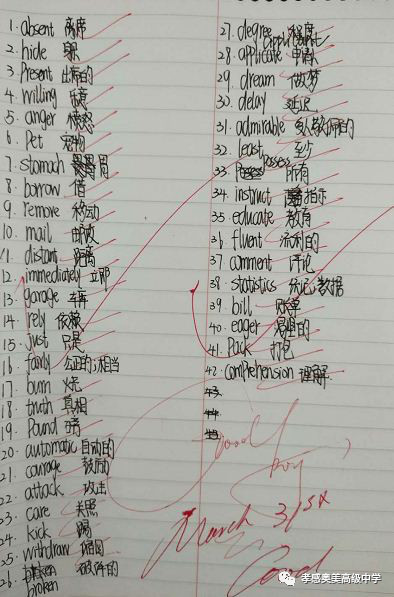 1. absent 离席
2. hide 躲
3. Present 出席的
4. willing 乐意
5. anger 愤怒
6. Pet 宠物
7. stomach 胃
8. borrow 借
9. remove 移动
10. mail 邮政
11. distant 距离
12. immediately 立即
13. garage 车库
14. rely 依赖
15. just 只是
16. fairly 公正的;相当
17. burn 火尧
18. truth 真相
19. Pound
20. automatic 自动的
21. courage 鼓励
22. attack 攻击
23. care 关照
24. kick 踢
25. withdraw
26. broken 破碎的
27. degree 程度
28. applicate 申请
29. dream 做梦
30. delay 延迟
31. admirable 令人敬佩的
32. least 至少
33. Possess 所有
34. instruct 指示
35. educate 教育
36. fluent 流利的
37. comment 评论
38. statistics 统记;数据
39. bill 账单
40. eager 渴望的
41. Pack 打包
42. comprehension 理解
43.
44.
45.
Good
boy
March 31st
Good
孝感奥美高级中学